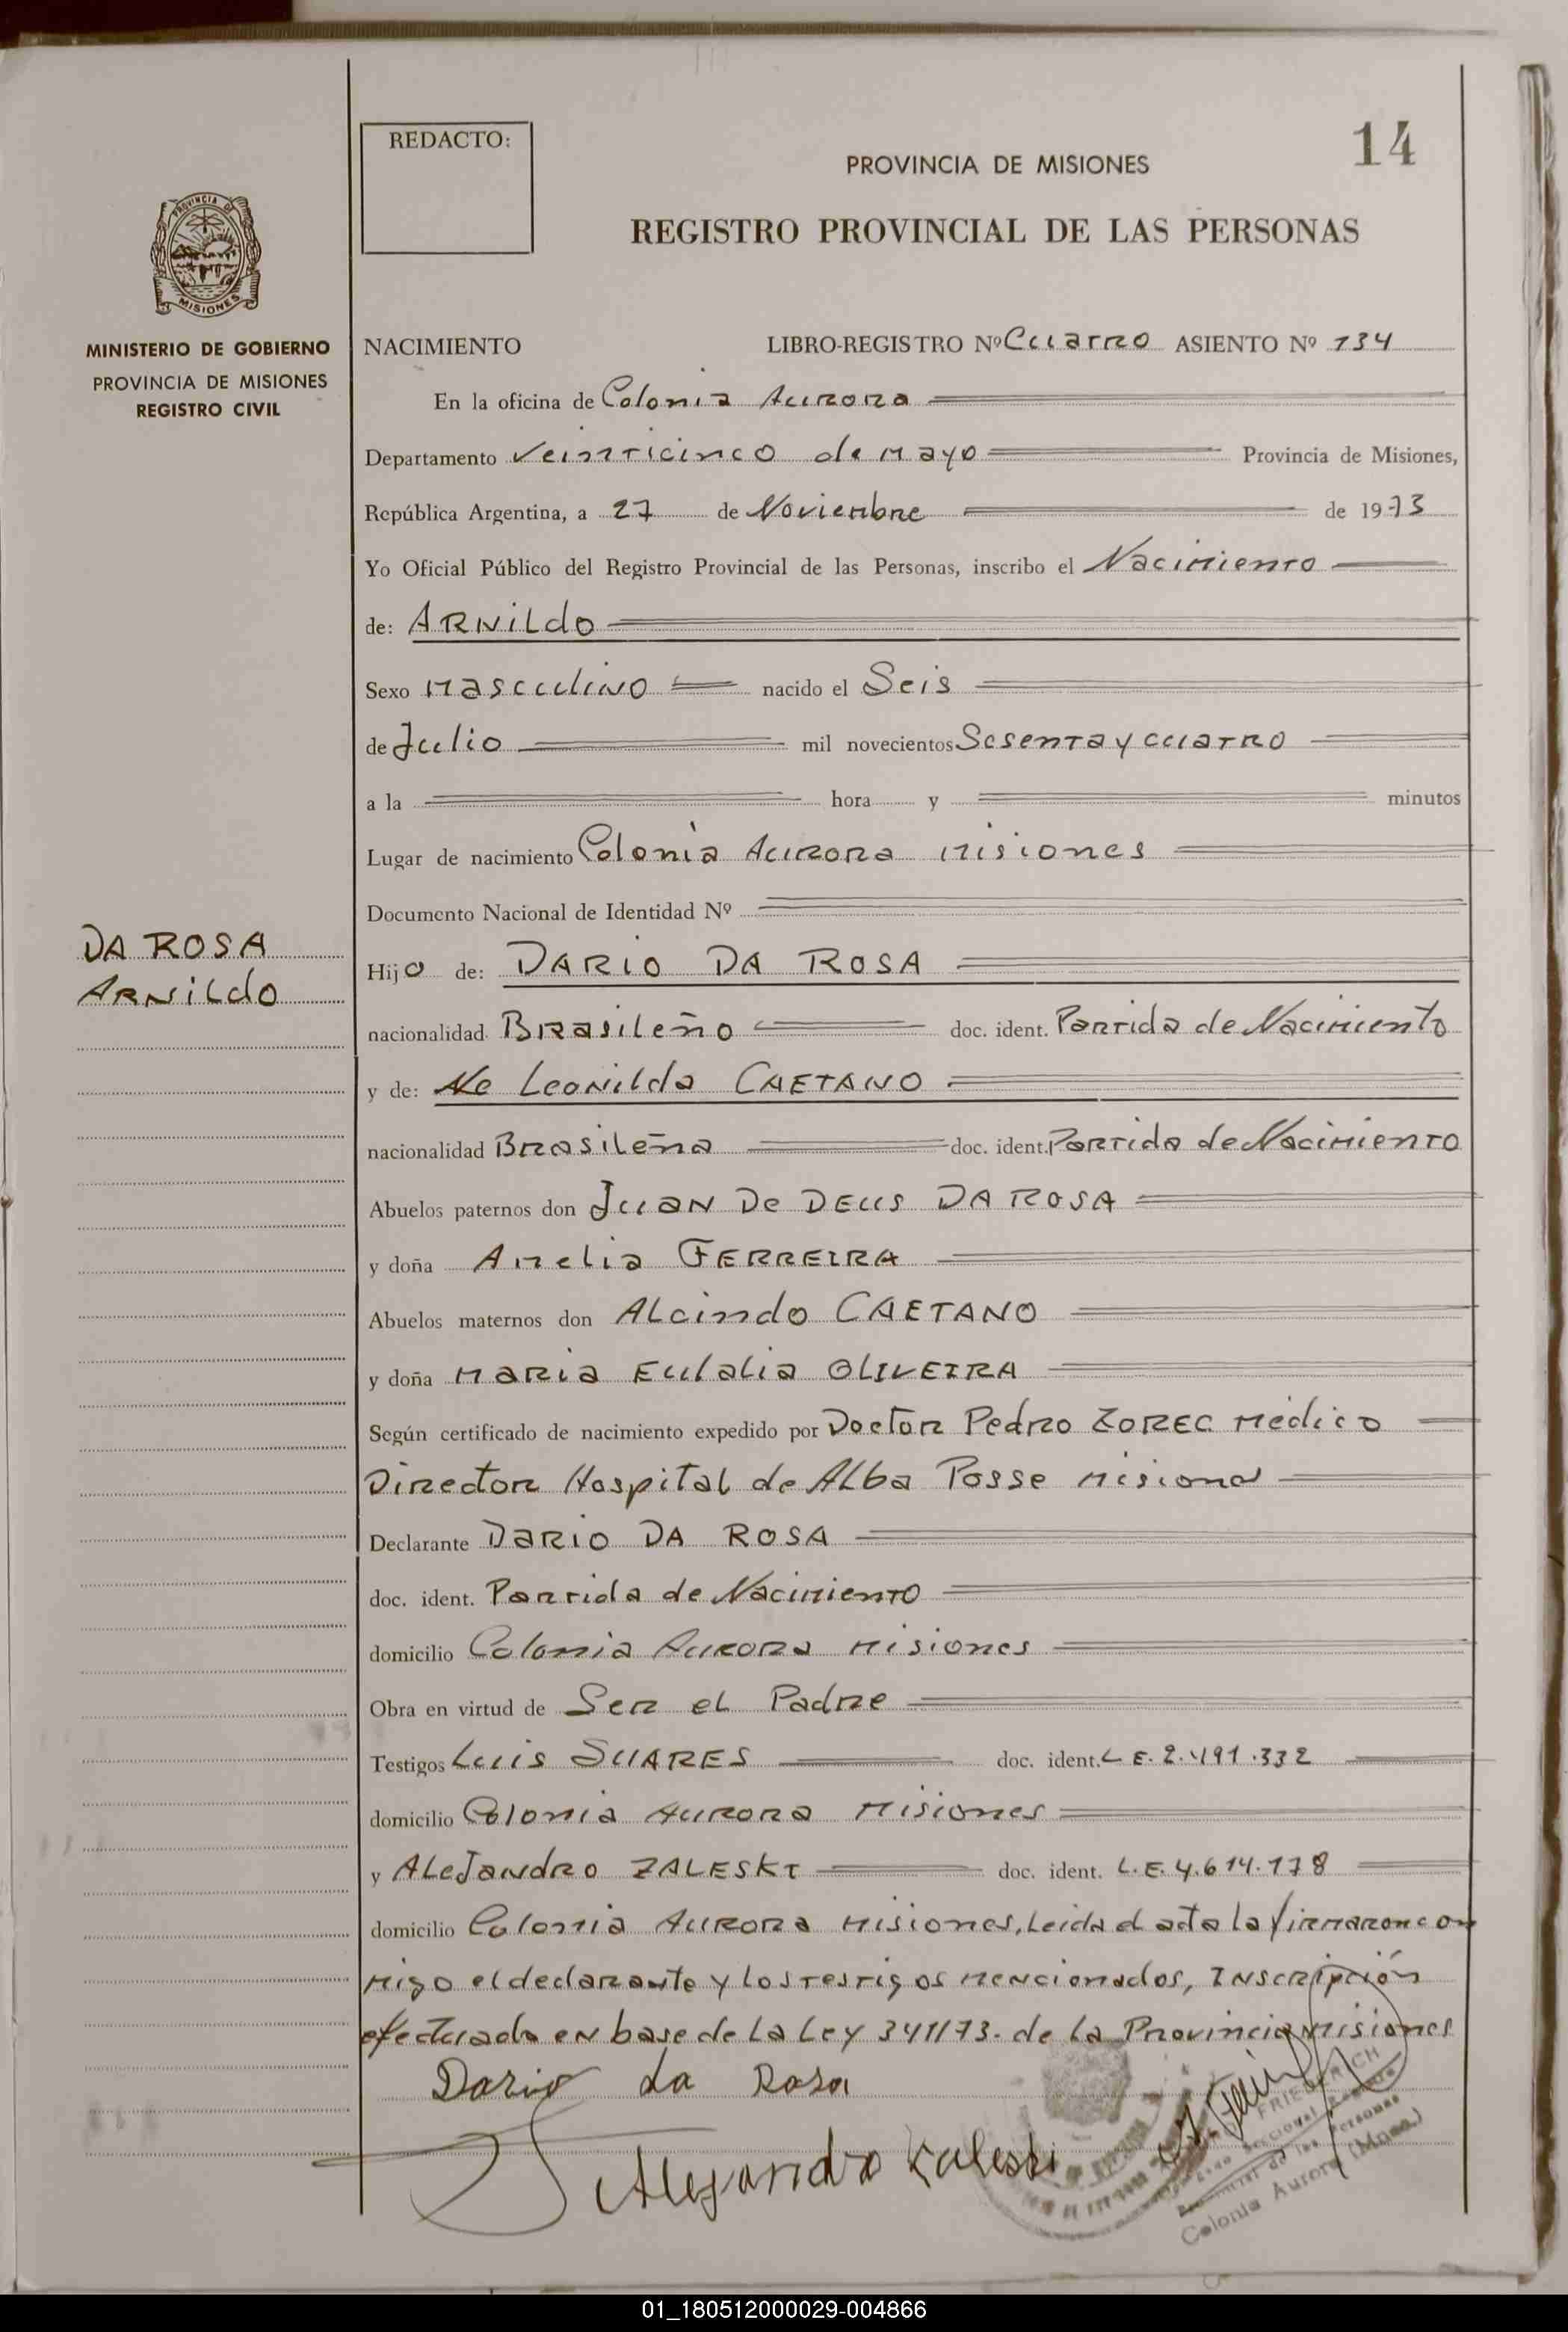 REDACTO:
14
PROVINCIA DE MISIONES
REGISTRO PROVINCIAL DE LAS PERSONAS
PROVINCIA DE
MISIONES
MINISTERIO DE GOBIERNO
PROVINCIA DE MISIONES
REGISTRO CIVIL
NACIMIENTO LIBRO-REGISTRO Nº Cuatro ASIENTO Nº 134
En la oficina de Colonia Aurora
Departamento Veinticinco de Mayo Provincia de Misiones,
República Argentina, a 27 de Noviembre de 1973
Yo Oficial Público del Registro Provincial de las Personas, inscribo el Nacimiento
de: ARNILdO
Sexo Masculino nacido el Seis
de Julio mil novecientos Sesenta y cuatro
a la hora y minutos
Lugar de nacimiento Colonia Aurora Misiones
Documento Nacional de Identidad Nº
DA ROSA
ARNILdO
Hijo de: DARIO DA ROSA
nacionalidad Brasileño doc. ident. Partida de Nacimiento
y de: Ne Leonilda CAETANO
nacionalidad Brasileña doc. ident. Partida de Nacimiento
Abuelos paternos don Juan De DEUS DA ROSA
y doña Amelia FERREIRA
Abuelos maternos don ALcindo CAETANO
y doña Maria Eulalia OLIVEIRA
Según certificado de nacimiento expedido por Doctor Pedro ZOREC Médico
Director Hospital de Alba Posse Misiones
Declarante DARIO DA ROSA
doc. ident. Partida de Nacimiento
domicilio Colonia Aurora Misiones
Obra en virtud de Ser el Padre
Testigos Luis SUARES doc. ident. L E. 2.491.332
domicilio Colonia Aurora Misiones
y ALeJandro ZALESKI doc. ident. L.E. 4.614.178
domicilio Colonia Aurora Misiones, Leida el acta la firmaron con
migo el declarante y los testigos mencionados, Inscripción
efectuada en base de la Ley 341/73. de la Provincia Misiones
Dario da Rosa
Alejandro Zaleski
FRIEDERICH
Colonia Aurora (Mnes.)
01_180512000029-004866